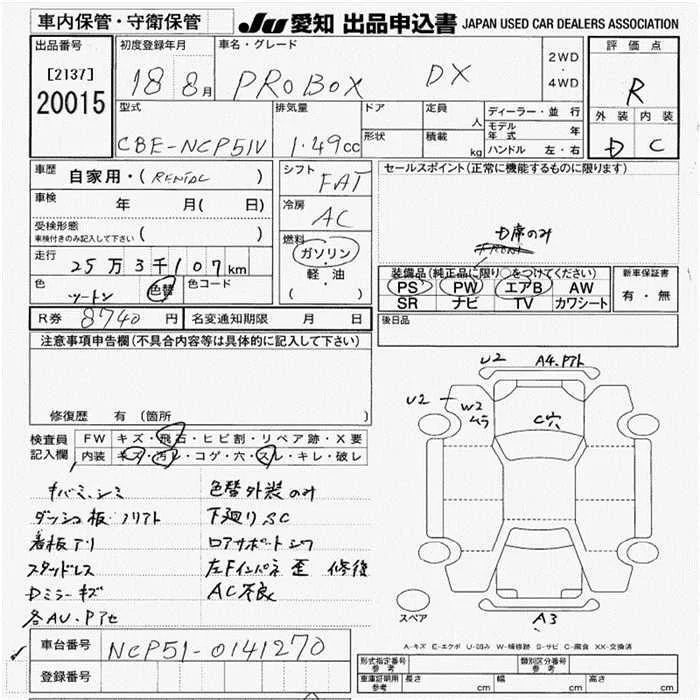 車内保管・守衛保管
JU 愛知 出品申込書 JAPAN USED CAR DEALERS ASSOCIATION
出品番号
[2137]
20015
初度登録年月
18 8月
車名・グレード
PROBOX DX
2WD
・
4WD
評価点
R
外装 内装
D C
型式
CBE-NCP51V
排気量
1.49cc
ドア
定員
人
形状
積載
kg
ディーラー・並行
モデル年式 年
ハンドル 左・右
車歴 自家用・( RENTAL )
車検 年 月( 日)
受検形態
車検付きのみ記入して下さい ( )
走行
25万3千107km
色
ツートン
色替
色コード
シフト
FAT
冷房
AC
燃料
ガソリン
・
軽・油
( )
セールスポイント(正常に機能するものに限ります)
D席のみ
FRONT
装備品(純正品に限り○をつけてください)
PS PW エアB AW
SR ナビ TV カワシート
新車保証書
有・無
R券 8740 円 名変通知期限 月 日
後日品
注意事項申告欄(不具合内容等は具体的に記入して下さい)
修復歴 有 (箇所 )
検査員
記入欄
FW キズ・飛石・ヒビ割・リペア跡・X要
内装 キズ・汚レ・コゲ・穴・スレ・キレ・破レ
キバミ、シミ
ダッシュ板・フリアト
看板アリ
スタッドレス
Dミラーキズ
各AU・Pアセ
色替外装のみ
下廻りSC
ロアサポートシワ
左Fインパネ歪 修復
AC不良
U2
A4.Pアト
U2
W2
ムラ
C穴
スペア
A3
A-キズ E-エクボ U-凹み W-補修跡 S-サビ C-腐食 XX-交換済
車台番号 NCP51-0141270
登録番号
形式指定番号
参考
類別区分番号
参考
車庫証明用
参考
長さ cm 幅 cm 高さ cm